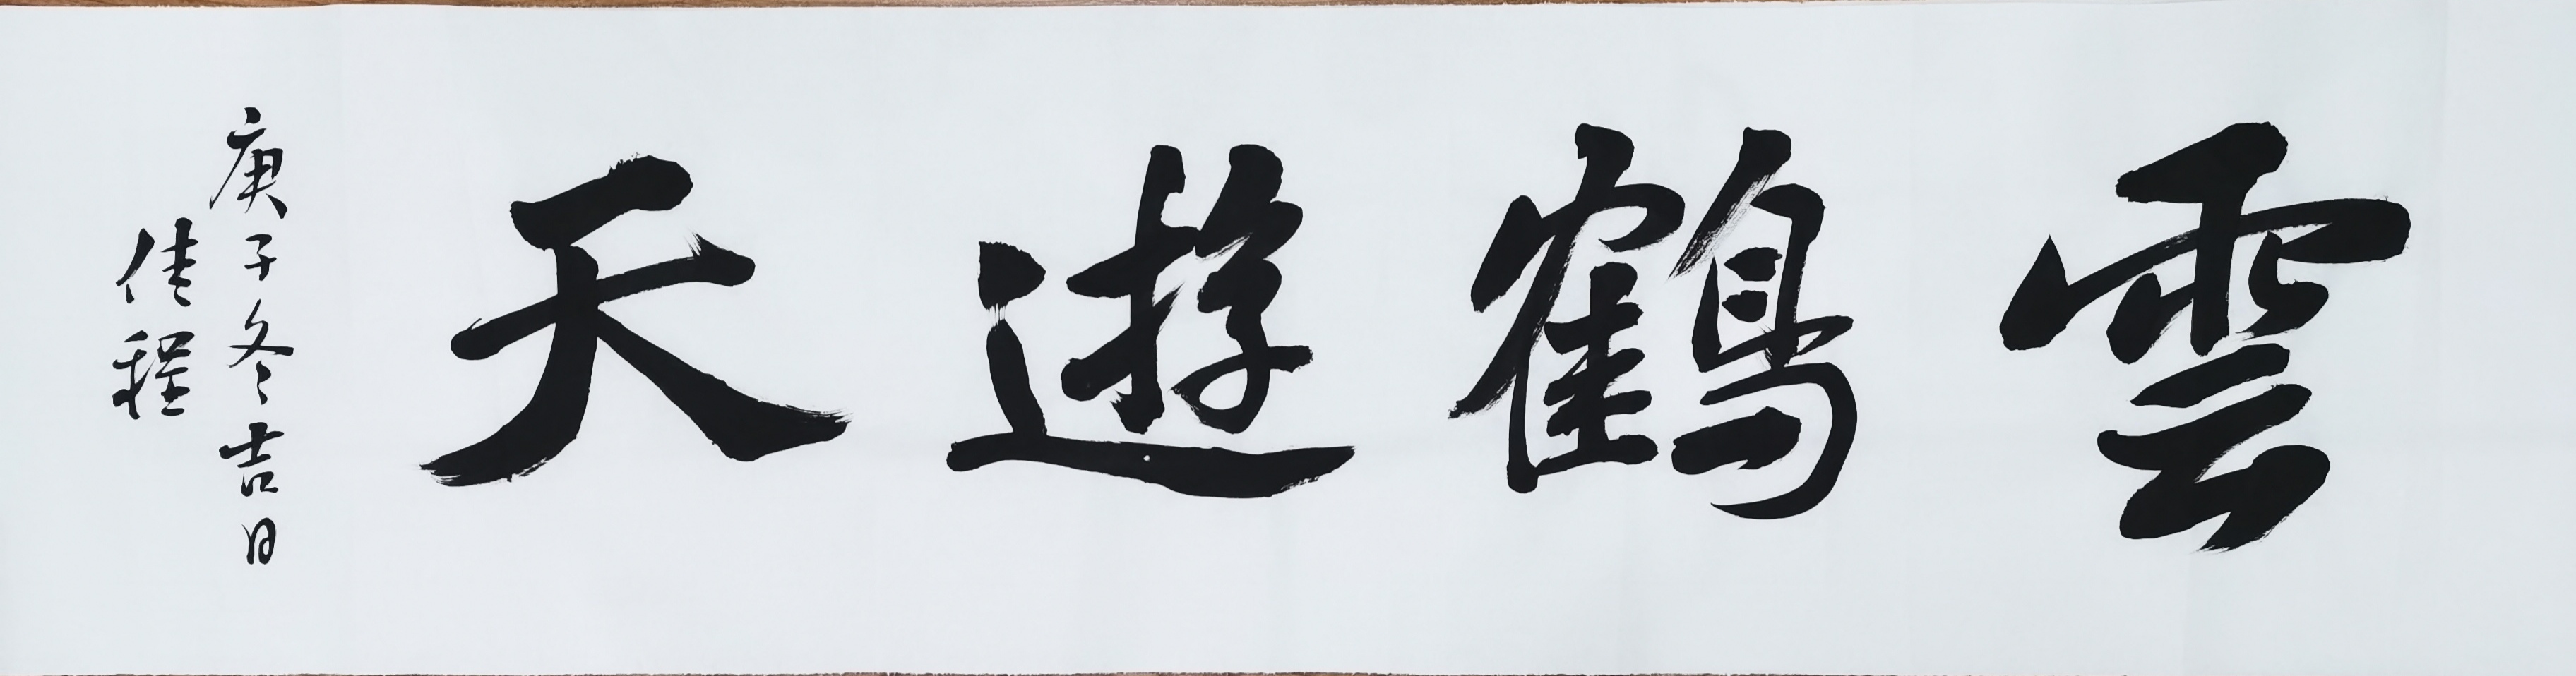 雲鶴遊天
庚子冬吉日
佳程